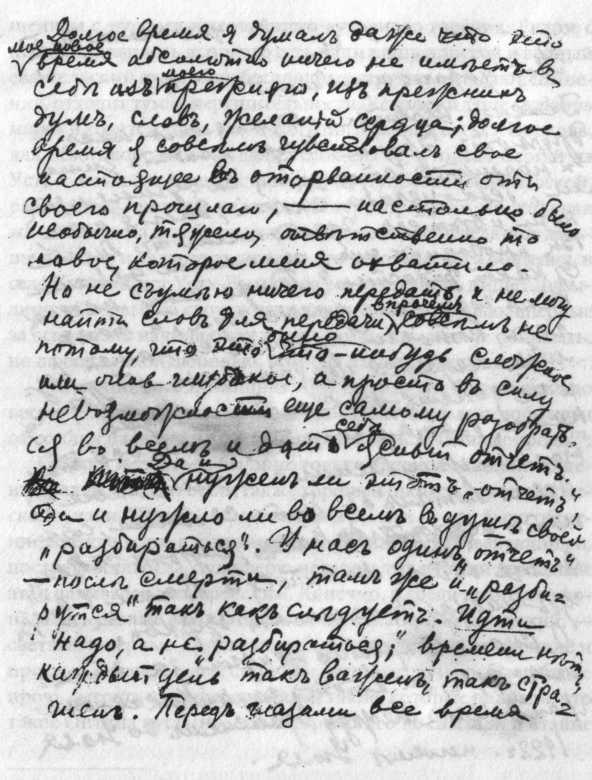 Долгое время я думалъ даже что это
мое новое
время абсолютно ничего не имѣетъ въ
моего
себѣ изъ прежняго, изъ прежнихъ
думъ, словъ, желаній сердца; долгое
время я совсѣмъ чувствовалъ свое
настоящее въ оторванности отъ
своего прошлаго, — настолько было
необычно, тяжело, отвѣтственно то
новое, которое меня охватило.
Но не съумѣю ничего передать и не могу
впрочемъ
найти словъ для передачи совсѣмъ не
было
потому, что это что-нибудь сложное
или очень, а просто въ силу
невозможности еще самому разобрать-
себѣ
ся во всемъ и дать ясный отчетъ.
Да и
нуженъ ли этотъ „отчетъ“
Да и нужно ли во всемъ въ душѣ своей
„разбираться“. У насъ одинъ „отчетъ“
— послѣ смерти, тамъ же и „разбе-
рутся“ такъ какъ слѣдуетъ. Идти
надо, а не „разбираться“; времени нѣтъ,
каждый день такъ важенъ, такъ стра-
шенъ. Передъ глазами все время